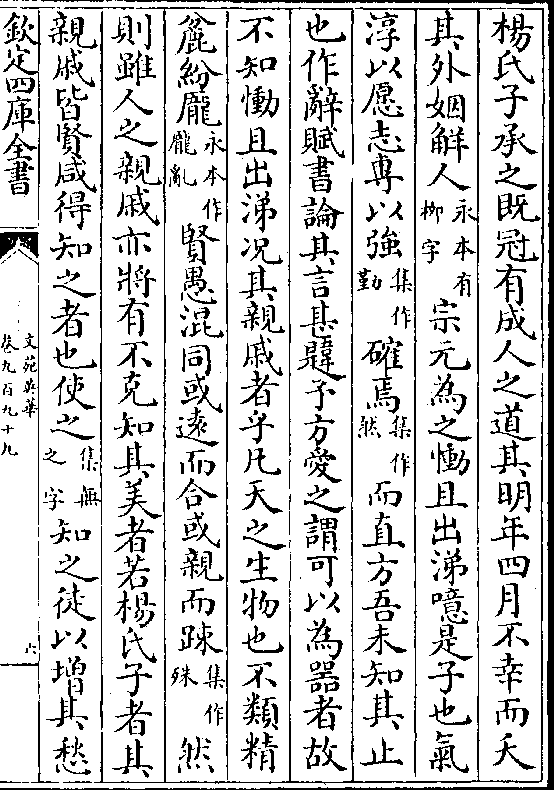 楊氏子承之既冠有成人之道其明年四月不幸而夭
其外姻解人永本有柳字宗元為之慟且出涕噫是子也氣
淳以愿志專以強集作勤確焉集作然而直方吾未知其止
也作辭賦書論其言甚韙予方愛之謂可以為器者故
不知慟且出涕况其親戚者乎凡天之生物也不類精
麄紛龐永本作龐亂賢愚混同或遠而合或親而踈集作殊然
則雖人之親戚亦將有不克知其美者若楊氏子者其
親戚皆賢咸得知之者也使之集無之字知之徒以增其愁
欽定四庫全書
文苑英華
卷九百九十九
六